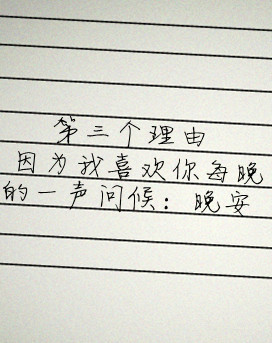 第三个理由
因为我喜欢你每晚
的一声问候：晚安